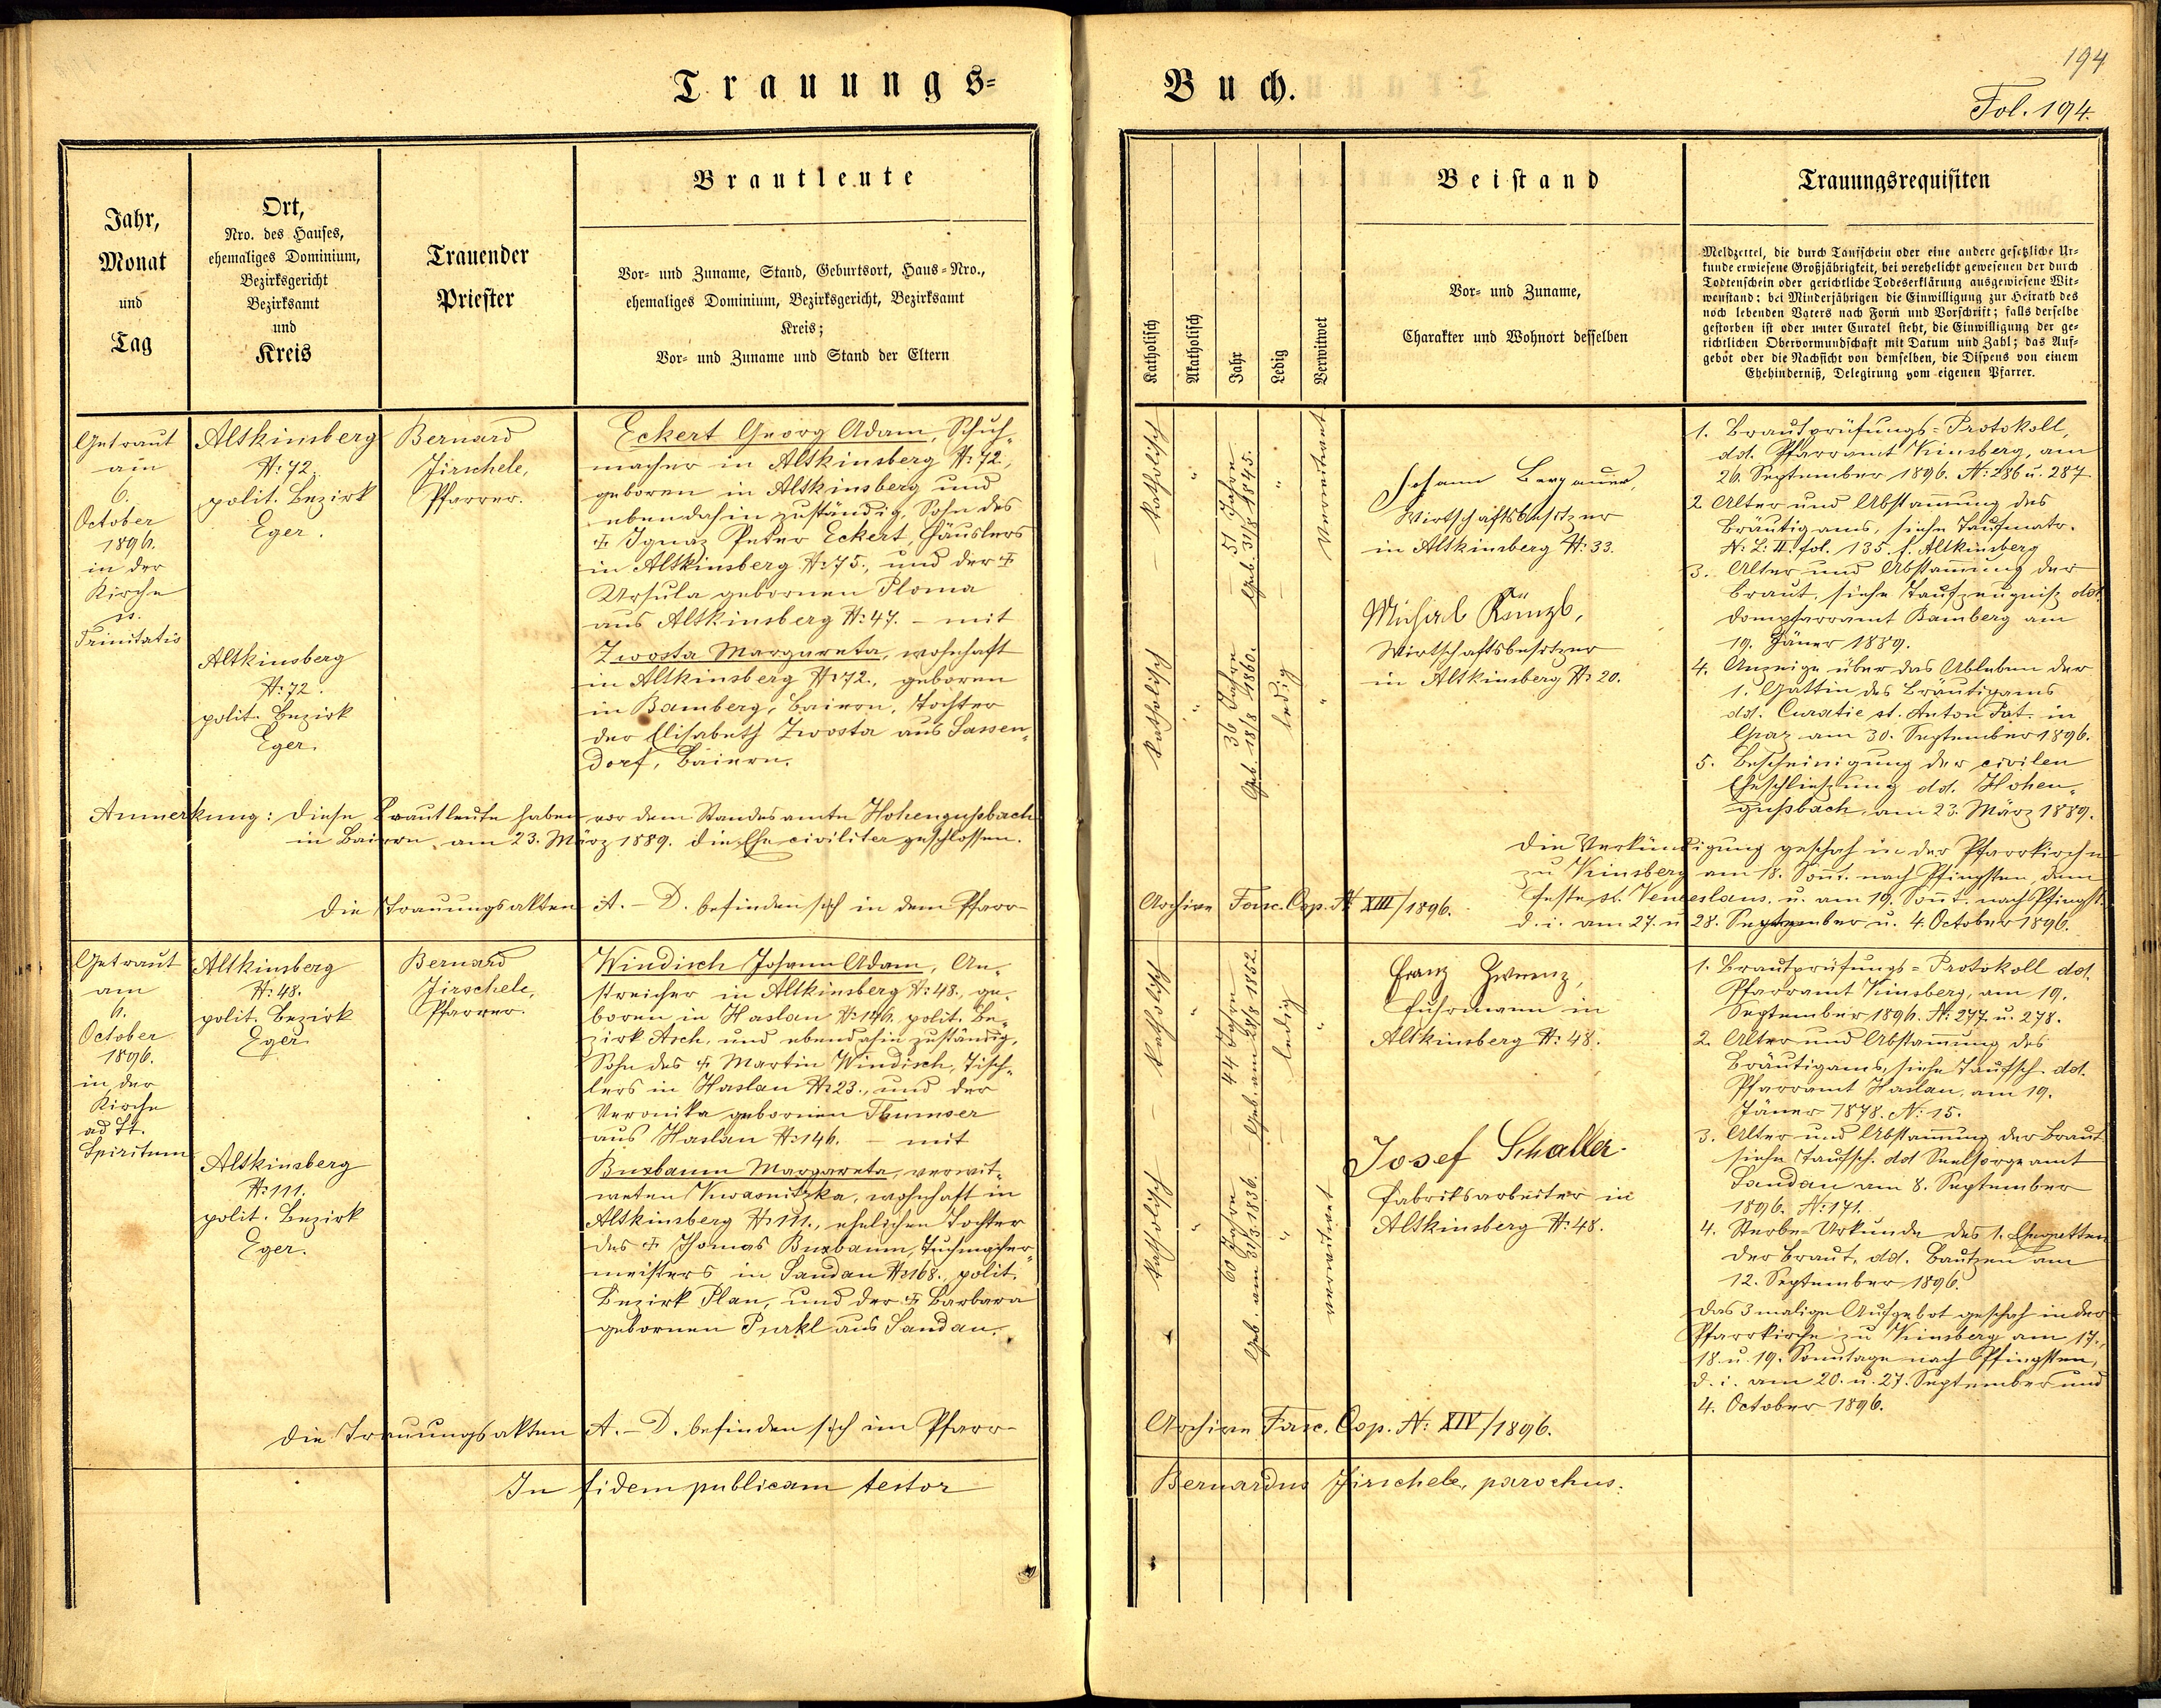 Trauungs-
Buch.
194
Fol. 194.
Jahr,
Monat
und
Tag
Ort,
Nro. des Hauses,
ehemaliges Dominium,
Bezirksgericht
Bezirksamt
und
Kreis
Trauender
Priester
Brautleute
Vor- und Zuname, Stand, Geburtsort, Haus-Nro.,
ehemaliges Dominium, Bezirksgericht, Bezirksamt
Kreis;
Vor- und Zuname und Stand der Eltern
Katholisch
Akatholisch
Jahr
Ledig
Verwitwet
Beistand
Vor- und Zuname,
Charakter und Wohnort desselben
Trauungsrequisiten
Meldzettel, die durch Taufschein oder eine andere gesetzliche Ur-
kunde erwiesene Großjährigkeit, bei verehelicht gewesenen der durch
Todtenschein oder gerichtliche Todeserklärung ausgewiesene Wit-
wenstand; bei Minderjährigen die Einwilligung zur Heirath des
noch lebenden Vaters nach Form und Vorschrift; falls derselbe
gestorben ist oder unter Curatel steht, die Einwilligung der ge-
richtlichen Obervormundschaft mit Datum und Zahl; das Auf-
gebot oder die Nachsicht von demselben, die Dispens von einem
Ehehinderniß, Delegirung vom eigenen Pfarrer.
Getraut
am
6.
October
1896.
in der
Kirche
ss.
Trinitatis
Altkinsberg
N: 72.
polit. Bezirk
Eger.
Altkinsberg
N: 72.
polit. Bezirk
Eger.
Bernard
Jirschele,
Pfarrer.
Eckert Georg Adam, Schuh-
macher in Altkinsberg N: 72.,
geboren in Altkinsberg und
ebendahin zuständig, Sohn des
† Ignaz Peter Eckert, Häuslers
in Altkinsberg N: 75., und der †
Ursula gebornen Ploma
aus Altkinsberg N: 47. – mit
Zwosta Margareta, wohnhaft
in Altkinsberg N: 72., geboren
in Bamberg, Baiern, Tochter
der Elisabeth Zwosta aus Sassen-
dorf, Baiern.
Anmerkung: Diese Brautleute haben vor dem Standesamte Hohengußbach
in Baiern am 23. März 1889. die Ehe civiliter geschlossen.
Die Trauungsakten A.–D. befinden sich in dem Pfarr-
Katholisch
"
51 Jahre
Geb. 31/8 1845.
"
Verwitwet
Katholisch
"
36 Jahre
Geb. 18/8 1860.
ledig
"
Johann Bergauer,
Wirtschaftsbesitzer
in Altkinsberg N: 33.
Michael Künzl,
Wirtschaftsbesitzer
in Altkinsberg N: 20.
1. Brautprüfungs-Protokoll,
dd. Pfarramt Kinsberg, am
26. September 1896. N: 286 u. 287
2. Alter und Abstammung des
Bräutigams, siehe Taufmatr.
N: L: II. fol. 135. f. Altkinsberg
3. Alter und Abstammung der
Braut, siehe Taufzeugniß dd.
Dompfarramt Bamberg am
19. Jäner 1889.
4. Anzeige über das Ableben der
1. Gattin des Bräutigams
dd. Curatie st. Anton Pat. in
Graz am 30. September 1896.
5. Bescheinigung der civilen
Eheschließung dd. Hohen-
gußbach, am 23. März 1889.
Die Verkündigung geschah in der Pfarrkirche
zu Kinsberg am 18. Sonnt. nach Pfingsten, dem
Feste st. Venceslaus. u. am 19. Sonnt. nach Pfingst.
d. i. am 27. u. 28. September u. 4. October 1896.
Archive Fasc. Cop. N: XIII/1896.
Getraut
am
6.
October
1896.
in der
Kirche
ad St.
Spiritum
Altkinsberg
N: 48.
polit. Bezirk
Eger.
Altkinsberg
N: 111.
polit. Bezirk
Eger.
Bernard
Jirschele,
Pfarrer.
Windisch Johann Adam, An-
streicher in Altkinsberg N: 48., ge-
boren in Haslau N: 146, polit. Be-
zirk Asch, und ebendahin zuständig,
Sohn des † Martin Windisch, Tisch-
lers in Haslau N: 23., und der
Veronika gebornen Thumser
aus Haslau N: 146. – mit
Buxbaum Margareta, verwit-
weten Kwasnitzka, wohnhaft in
Altkinsberg N: 111., ehelichen Tochter
des † Thomas Buxbaum, Tuchmacher-
meisters in Sandau N: 168., polit.
Bezirk Plan, und der † Barbara
gebornen Purkl aus Sandau.
Die Trauungsakten A.–D. befinden sich im Pfarr-
Katholisch
"
44 Jahre
Geb. am 28/8 1852.
ledig
"
Katholisch
"
60 Jahre
Geb. am 31/3 1836.
"
verwitwet
Franz Zwerenz,
Fuhrmann in
Altkinsberg N: 48.
Josef Schaller
Fabriksarbeiter in
Altkinsberg N: 48.
1. Brautprüfungs-Protokoll dd.
Pfarramt Kinsberg, am 19.
September 1896. N: 277. u. 278.
2. Alter und Abstammung des
Bräutigams, siehe Taufsch. dd.
Pfarramt Haslau, am 19.
Jäner 1878. N: 15.
3. Alter und Abstammung der Braut
siehe Taufsch. dd Seelsorgeamt
Sandau am 8. September
1896. N: 171.
4. Sterbe-Urkunde des 1. Ehegatten
der Braut, dd. Bautzen am
12. September 1896.
Das 3malige Aufgebot geschah in der
Pfarrkirche zu Kinsberg am 17.,
18. u. 19. Sonntage nach Pfingsten,
d. i. am 20. u. 27. September und
4. October 1896.
Archive Fasc. Cop. N: XIV/1896.
In fidem publicam testor
Bernardus Jirschele, parochus.